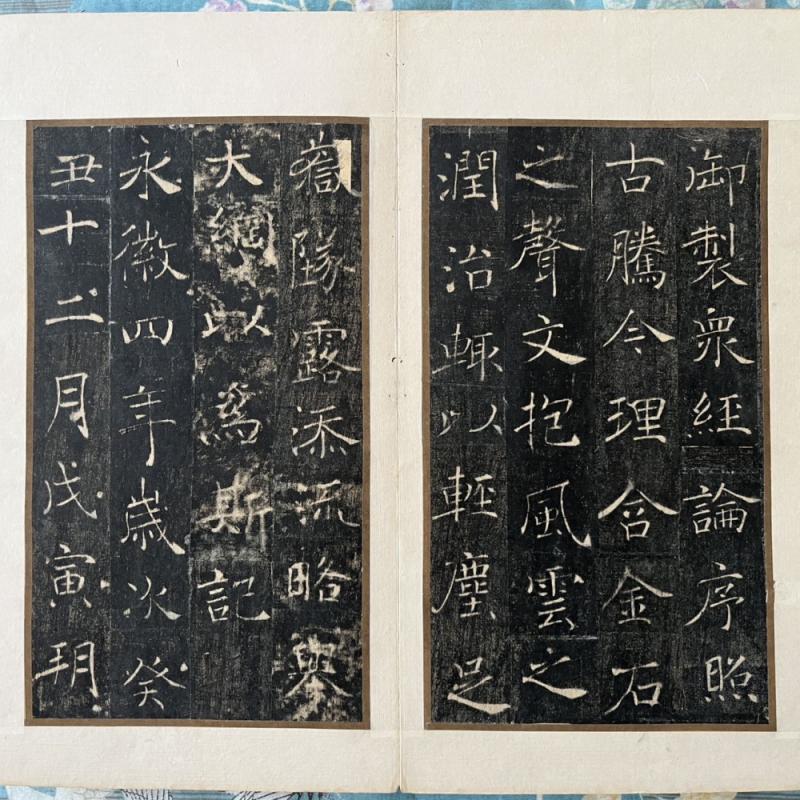 御製衆經論序照
古騰今理含金石
之聲文抱風雲之
潤治輙以輕塵足
嶽墜露添流略舉
大綱以爲斯記
永徽四年歲次癸
丑十二月戊寅朔